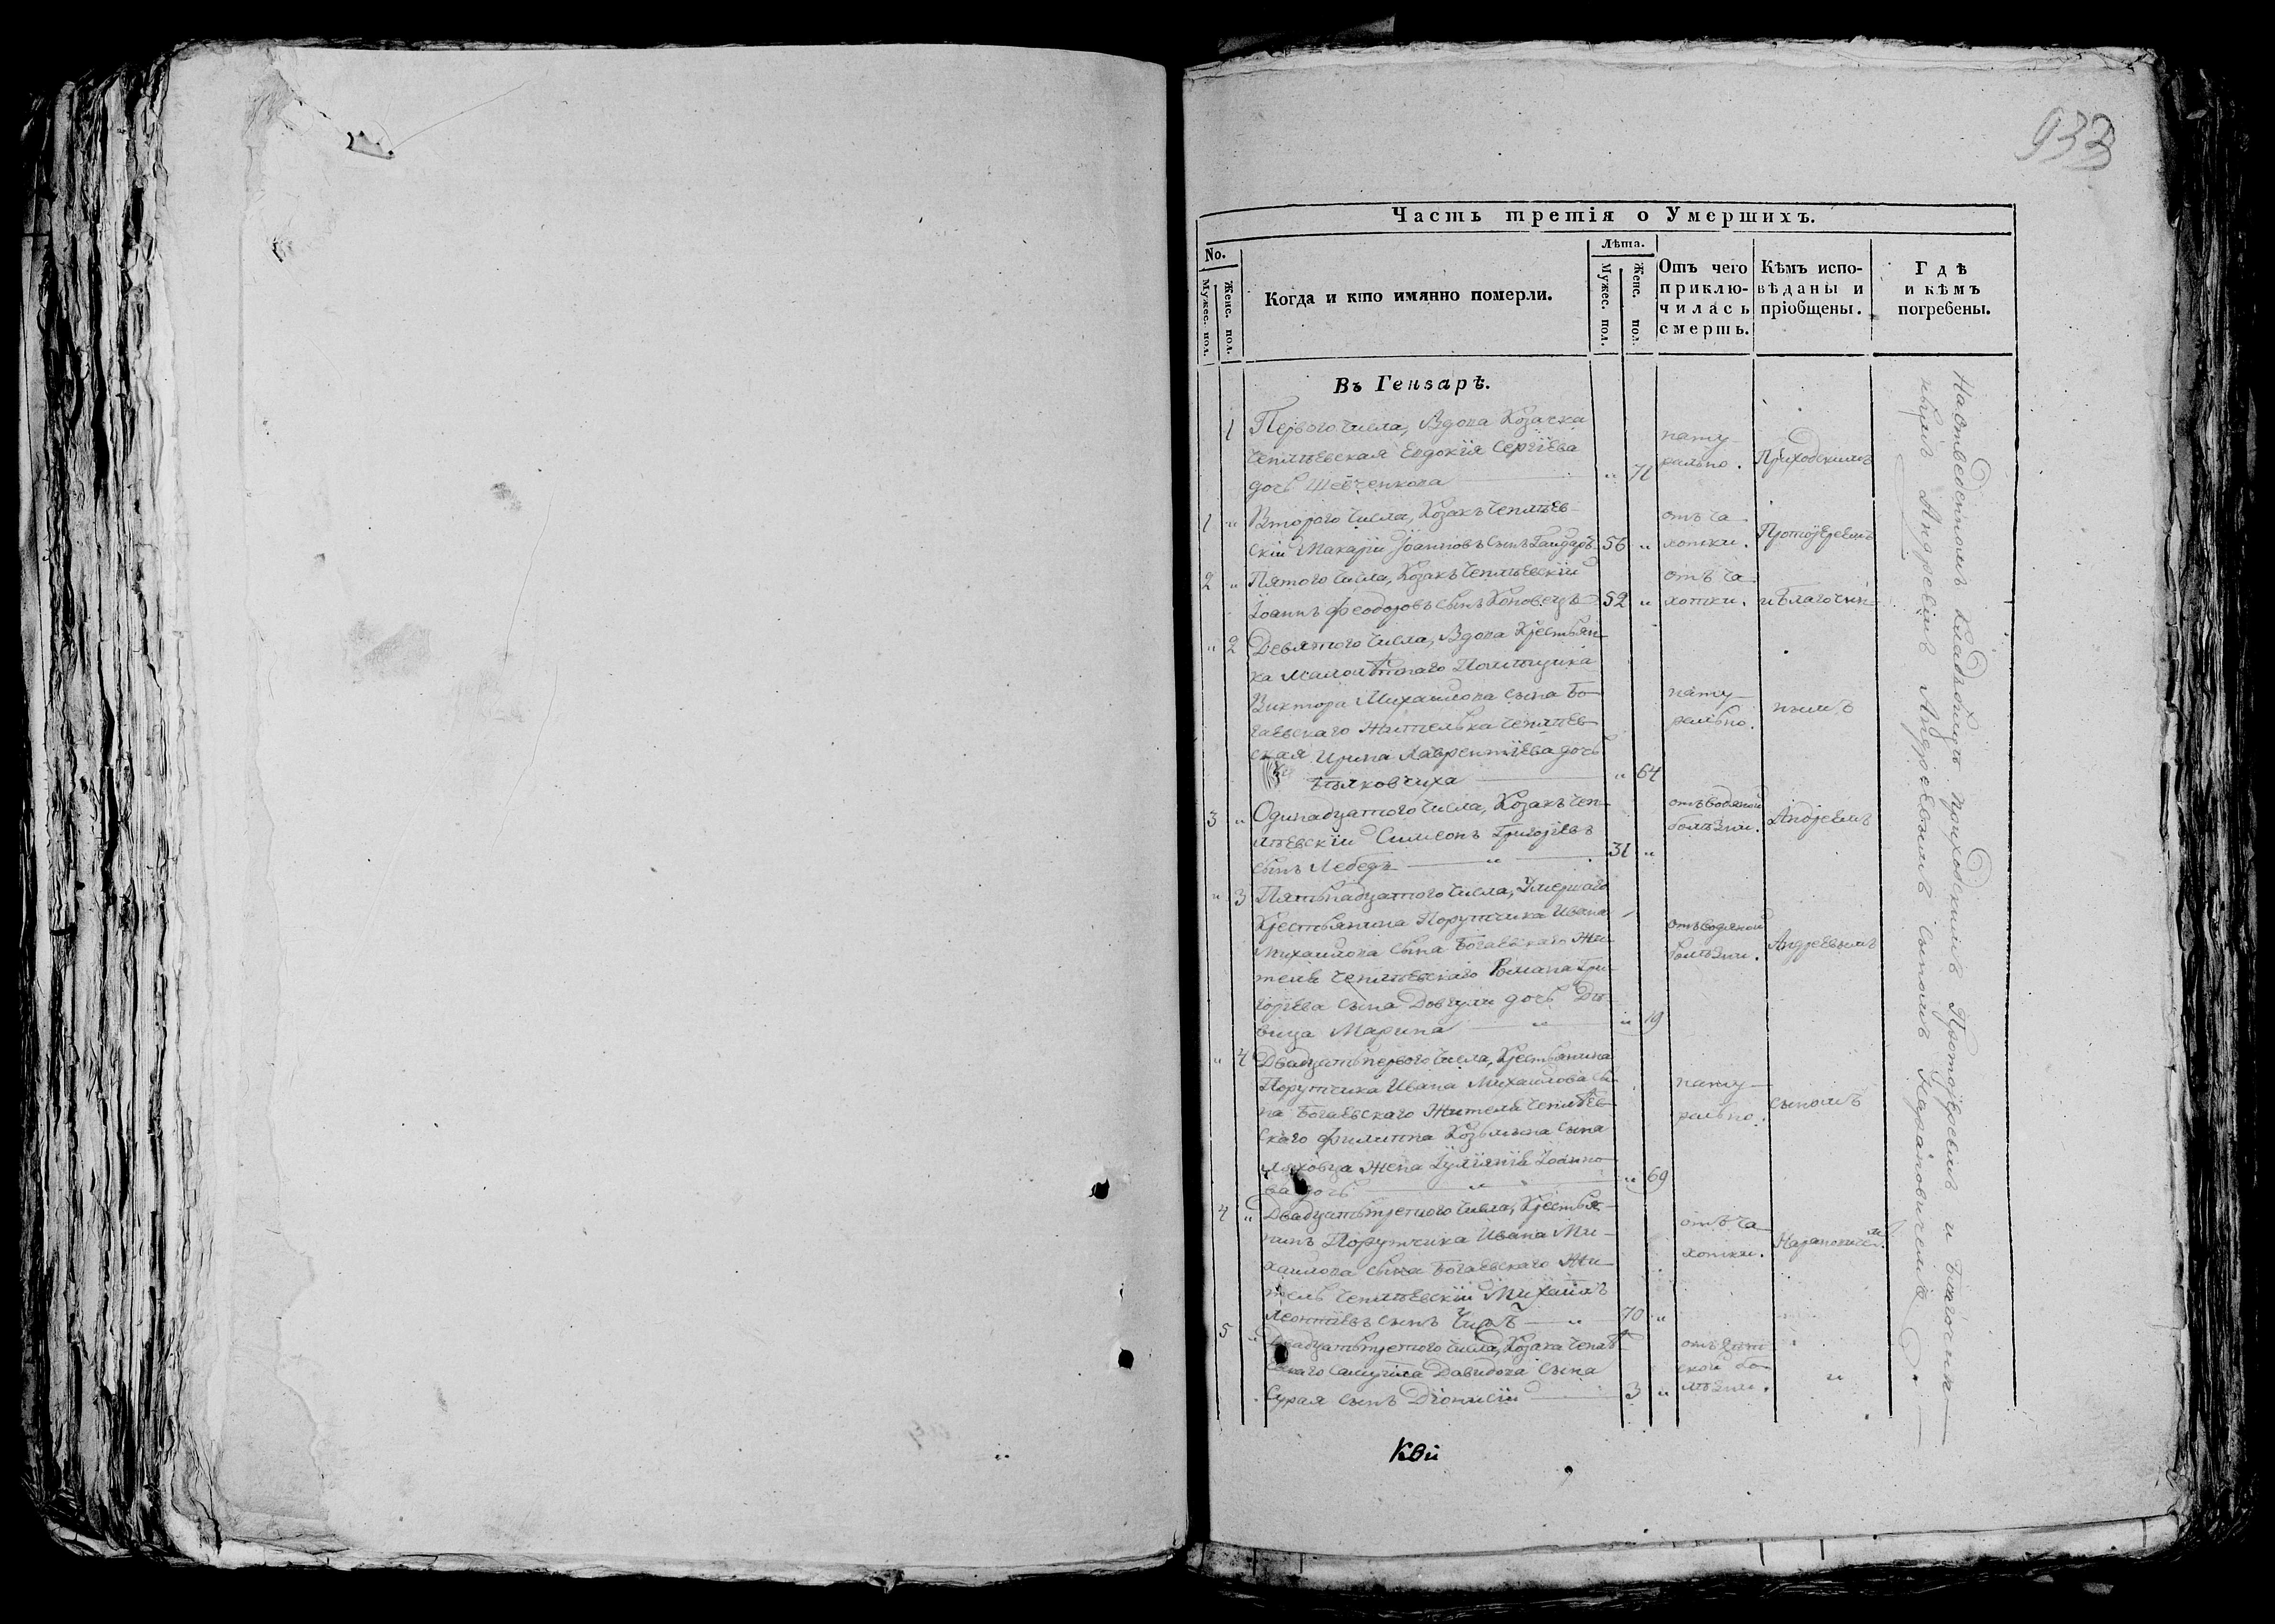 933
Часть третія о Умершихъ.
No.
Мужес. пол.
Женс. пол.
Когда и кто имянно померли.
Лѣта.
Мужес. пол.
Женс. пол.
Отъ чего приклю-
чилась смерть.
Кѣмъ испо-
вѣданы и
пріобщены.
Гдѣ
и кѣмъ
погребены.
Въ Генварѣ.
1 Первого числа, Вдова Козачка
Чепилѣевская Евдокія Сергіева
дочь Шевченкова " 71
нату-
рально.
Приходскимъ
1 " Второго числа, Козакъ Чепилѣев-
скій Макарій Іоанновъ сынъ Гайдаръ 56 "
отъ ча-
хотки.
Протоіереемъ
2 " Пятого числа, Козакъ Чепилѣевскій
Іоаннъ Феодоровъ сынъ Коновецъ 52 "
отъ ча-
хотки.
и Благочин-
" 2 Девятого числа, Вдова Крестьян-
ка малолѣтнаго Помѣщика
Виктора Михайлова сына Бо-
гаевскаго Жителька Чепилѣев-
ская Ирина Лаврентіева дочь
" 64
нату-
рально.
нымъ
3 " Одинадцатого числа, Козакъ Чеп-
илѣевскій Симеонъ Григоріевъ
сынъ Лебедь " 31 "
отъ водяной
болѣзни.
Андреемъ
" 3 Пятьнадцатого числа, Умершаго
Крестьянина Порутчика Ивана
Михайлова сына Богаевскаго Жи-
теля Чепилѣевскаго Романа Гри-
горіева сына Довгули дочь Дѣ-
вица Марина " " 19
отъ водяной
болѣзни.
Андреевымъ
" 4 Двадцатьпервого числа, Крестьянина
Порутчика Ивана Михайлова сы-
на Богаевскаго Жителя Чепилѣев-
скаго Филиппа Козьмина сына
Ляховца жена Іуліянія Іоанно-
ва дочь " " 69
нату-
рально.
сыномъ
4 " Двадцатьтретого числа, Крестья-
нинъ Порутчика Ивана Ми-
хайлова сына Богаевскаго Жи-
тель Чепилѣевскій Михаилъ
Леонтіевъ сынъ " 70 "
отъ ча-
хотки.
5 " Двадцатьтретого числа, Козака Чепилѣ-
евскаго Самуила Давидова сына
Сурая сынъ Діонисій 3 "
болѣзни.
"
На отведенномъ кладбищѣ приходскимъ Протоіереемъ и Благочин-
нымъ Андреемъ Андреевымъ сыномъ